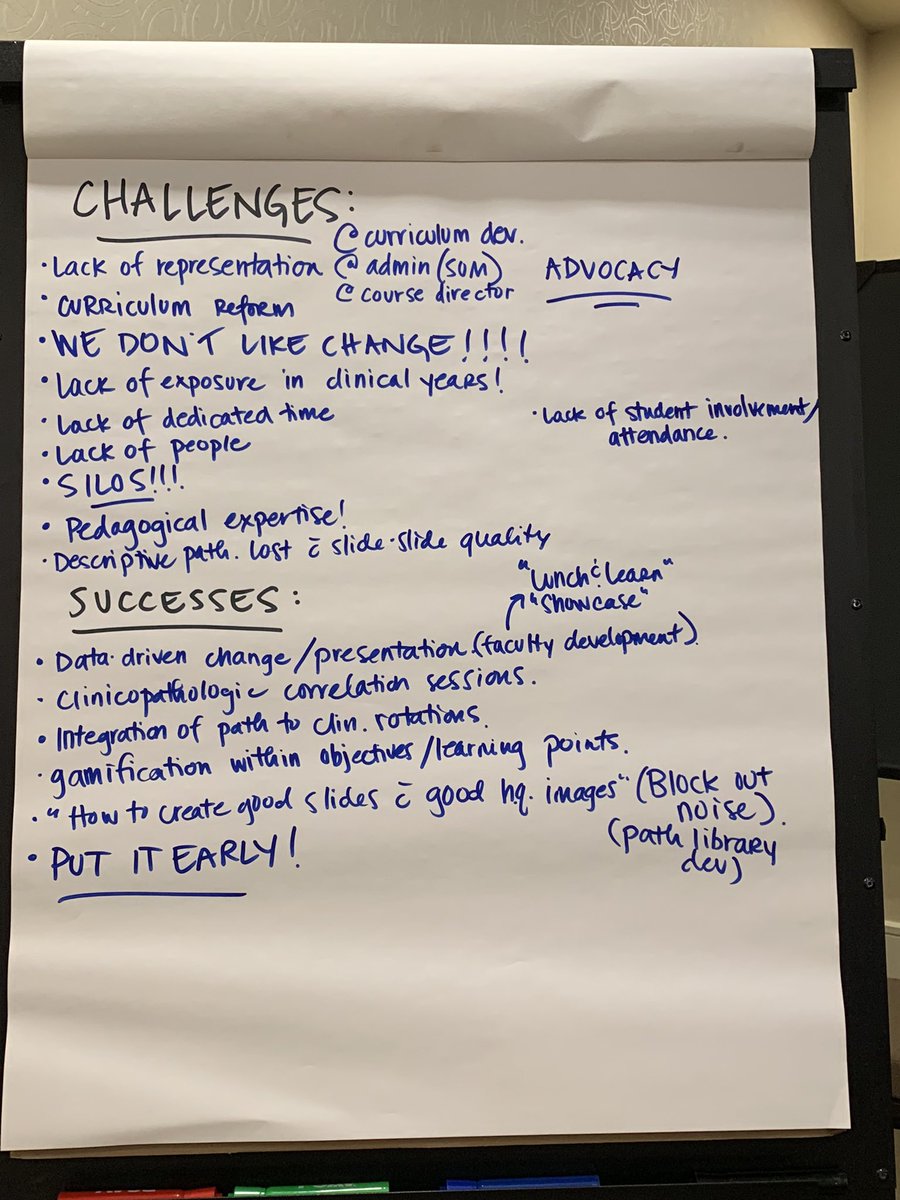 CHALLENGES:
@ curriculum dev.
• Lack of representation @ admin (SOM) ADVOCACY
@ course director
• CURRICULUM Reform
• WE DON'T LIKE CHANGE!!!!
• Lack of exposure in clinical years!
• Lack of dedicated time
• Lack of student involvement/
attendance.
• Lack of people
• SILOS!!!
• Pedagogical expertise!
• Descriptive path. lost c̄ slide-slide quality
SUCCESSES:
"Lunch & learn"
"Showcase"
• Data-driven change/presentation (faculty development).
• Clinicopathologic correlation sessions.
• Integration of path to clin. rotations.
• gamification within objectives/learning points.
• "How to create good slides c̄ good hq. images" (Block out
noise).
(path library
dev)
• PUT IT EARLY!